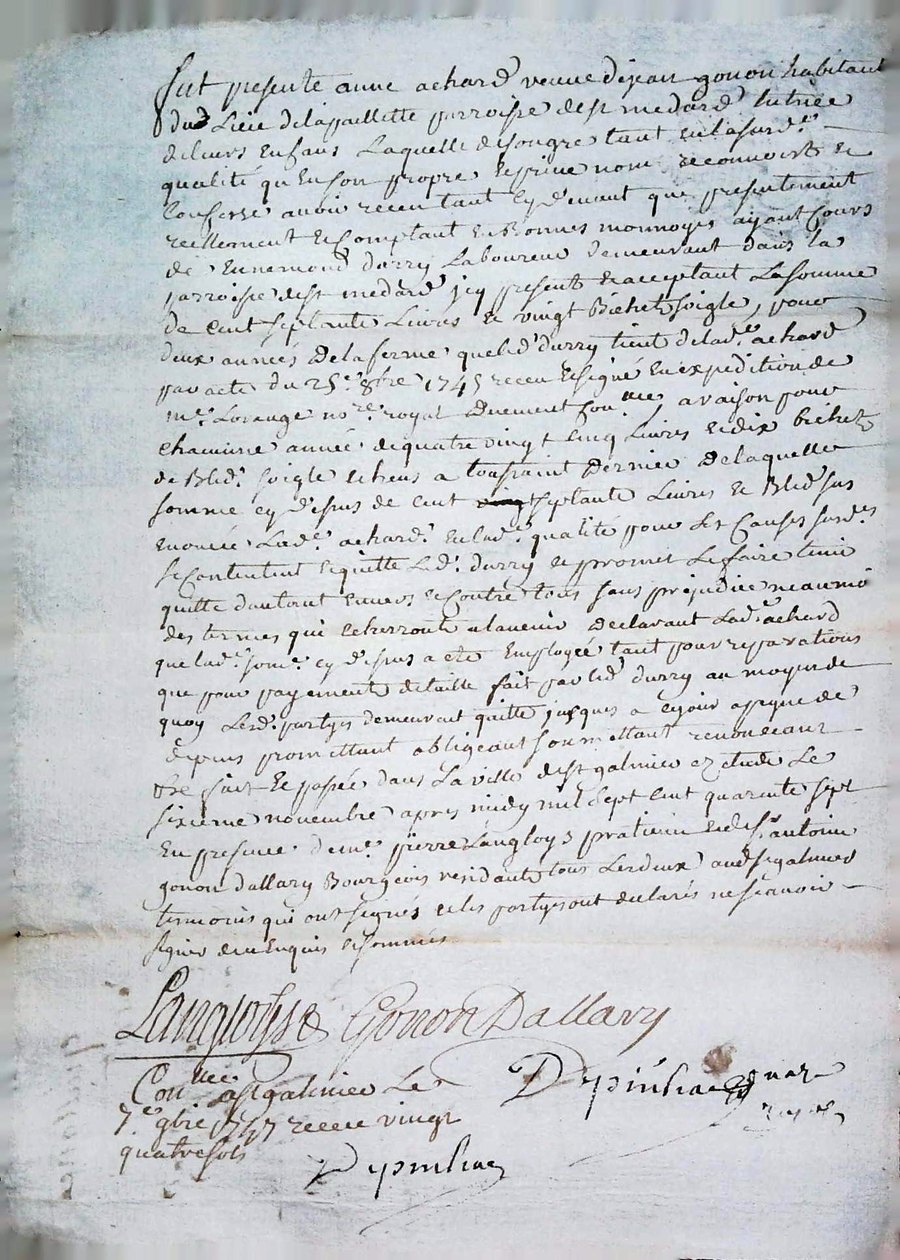 fut presente anne achard veuve de jean gonon habitant
dud Lieu de lapaillette parroisse de st medard tutrice
de leurs Enfans Laquelle de son gre tant en lasusd.e
qualité qu'En son propre et prive nom reconnoist et
Confesse avoir receu tant cy devant que presentement
reellement et Comptant En Bonnes monnoyes ayant Cours
de Ennemond durry Laboureur demeurant dans la
parroisse de st medard jcy present et acceptant La somme
de Cent septante Livres et vingt Bichet soigle, pour
deux années de la ferme que led durry tient de lad.e achard
par acte du 25.e 8bre 1745 receu et signé En expedition de
m.e Lorange no.re royal duement Con.llé, a raison pour
chacune année de quatre vingt Cinq Livres et dix bichet
de Bled soigle echeus a toussaint dernier de laquelle
somme cy dessus de Cent septante Livres et Bled sus
enoncée Lad.e achard En lad.e qualité pour les Causes susd.es
se Contentent et quitte Led. durry et promet Le faire tenir
quitte d'autant envers et Contre tous sans prejudice neaumoins
des termes qui echerront a lavenir declarant Lad.e achard
que lad.e som.e cy dessus a eté Employée tant pour reparations
que pour payement de taille fait par led durry au moyen de
quoy Lesd. partyes demeurant quitte jusques a ce jour a peyne de
depens promettant obligeant soumettant renonceant
&re fait et passée dans La ville de st galmier ez etude Le
sixieme novembre apres midy mil sept Cent quarente sept
En presence de m.e pierre Langloys praticien et de s.r antoine
gonon dallary Bourgeois residants tous Lesdeux aud st galmier
temoins qui ont signés et les partyes ont declarés ne scavoir
signer de ce Enquis et sommés
Langloys Gonon Dallary
Con.llé a st galmier Le
7.e 9bre 1747 receu vingt
quatre sols